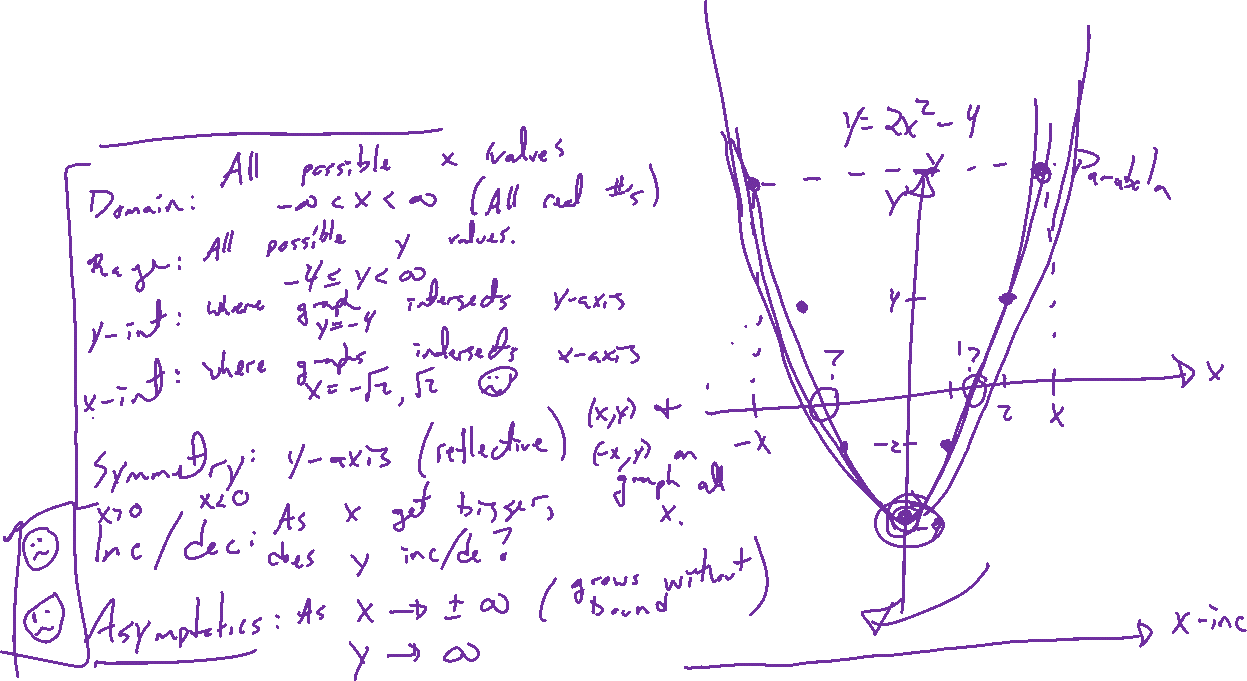 All possible x values
Domain: -∞ < x < ∞ (All real #s)
Range: All possible y values.
-4 ≤ y < ∞
y-int: where graph intersects y-axis
y = -4
x-int: where graphs intersects x-axis
x = -√2, √2
Symmetry: y-axis (reflective) (x,y) +
(-x,y) on
graph all
x.
x>0 x<0
Inc/dec: As x get bigger,
does y inc/de?
Asymptotics: As x → ± ∞ (grows without
bound)
y → ∞
y = 2x² - 4
Parabola
y
y
4
? 1 ?
x
-x 2 x
-2
x-inc